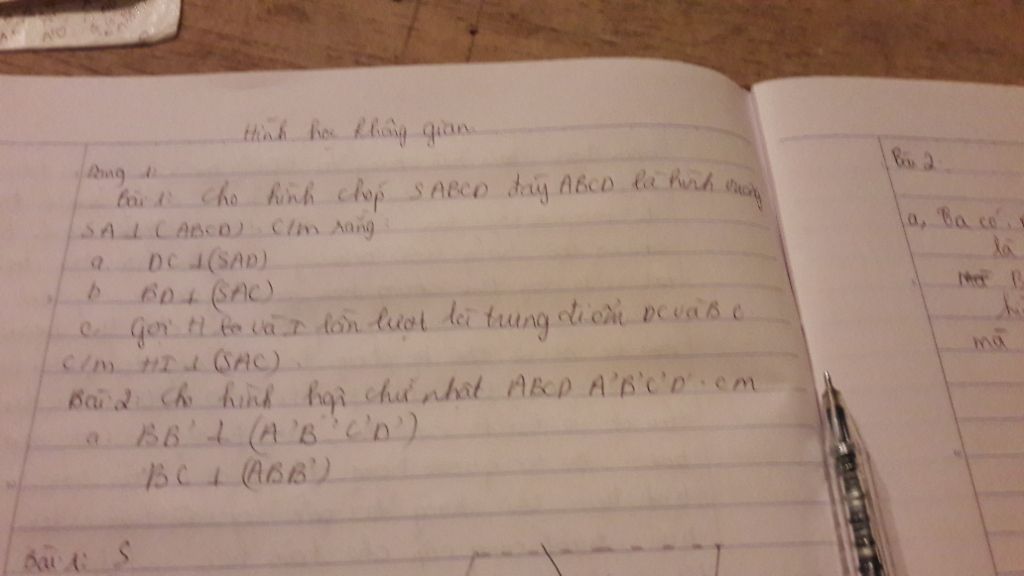 Hình học không gian
Dạng 1:
Bài 1: Cho hình chóp SABCD đáy ABCD là hình vuông
SA ⊥ (ABCD). C/m rằng:
a. DC ⊥ (SAD)
b BD ⊥ (SAC)
c. Gọi H và I lần lượt là trung điểm DC và BC
C/m HI ⊥ (SAC).
Bài 2: Cho hình hộp chữ nhật ABCD A'B'C'D'. cm
a. BB' ⊥ (A'B'C'D')
BC ⊥ (ABB')
Bài 1: S
Bài 2
a, Ta có:
là
B
mà